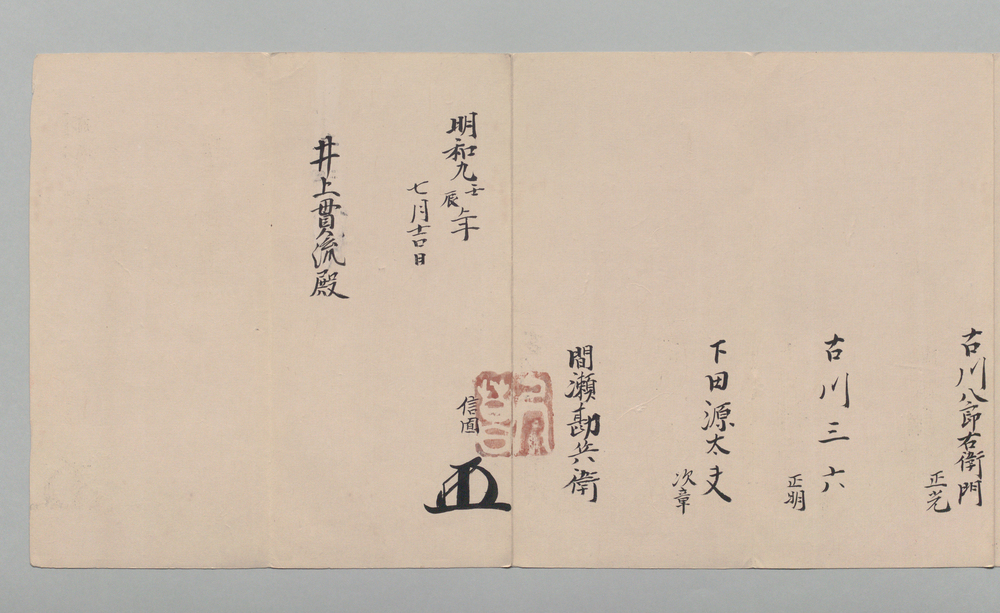 古川八郎右衛門
正光
古川三六
正明
下田源太夫
次章
間瀬勘兵衛
信圓
明和九壬辰年
七月十二日
井上貫流殿